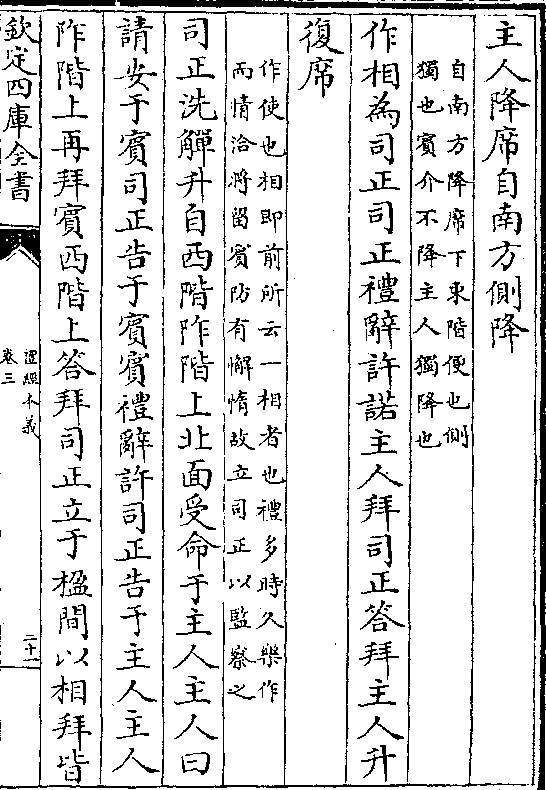 主人降席自南方側降
自南方降席下東階便也側
獨也賓介不降主人獨降也
作相為司正司正禮辭許諾主人拜司正答拜主人升
復席
作使也相即前所云一相者也禮多時久樂作
而情洽將留賓防有懈惰故立司正以監察之
司正洗觶升自西階阼階上北面受命于主人主人曰
請安于賓司正告于賓賓禮辭許司正告于主人主人
阼階上再拜賓西階上答拜司正立于楹間以相拜皆
欽定四庫全書
禮經本義
卷三
二十一